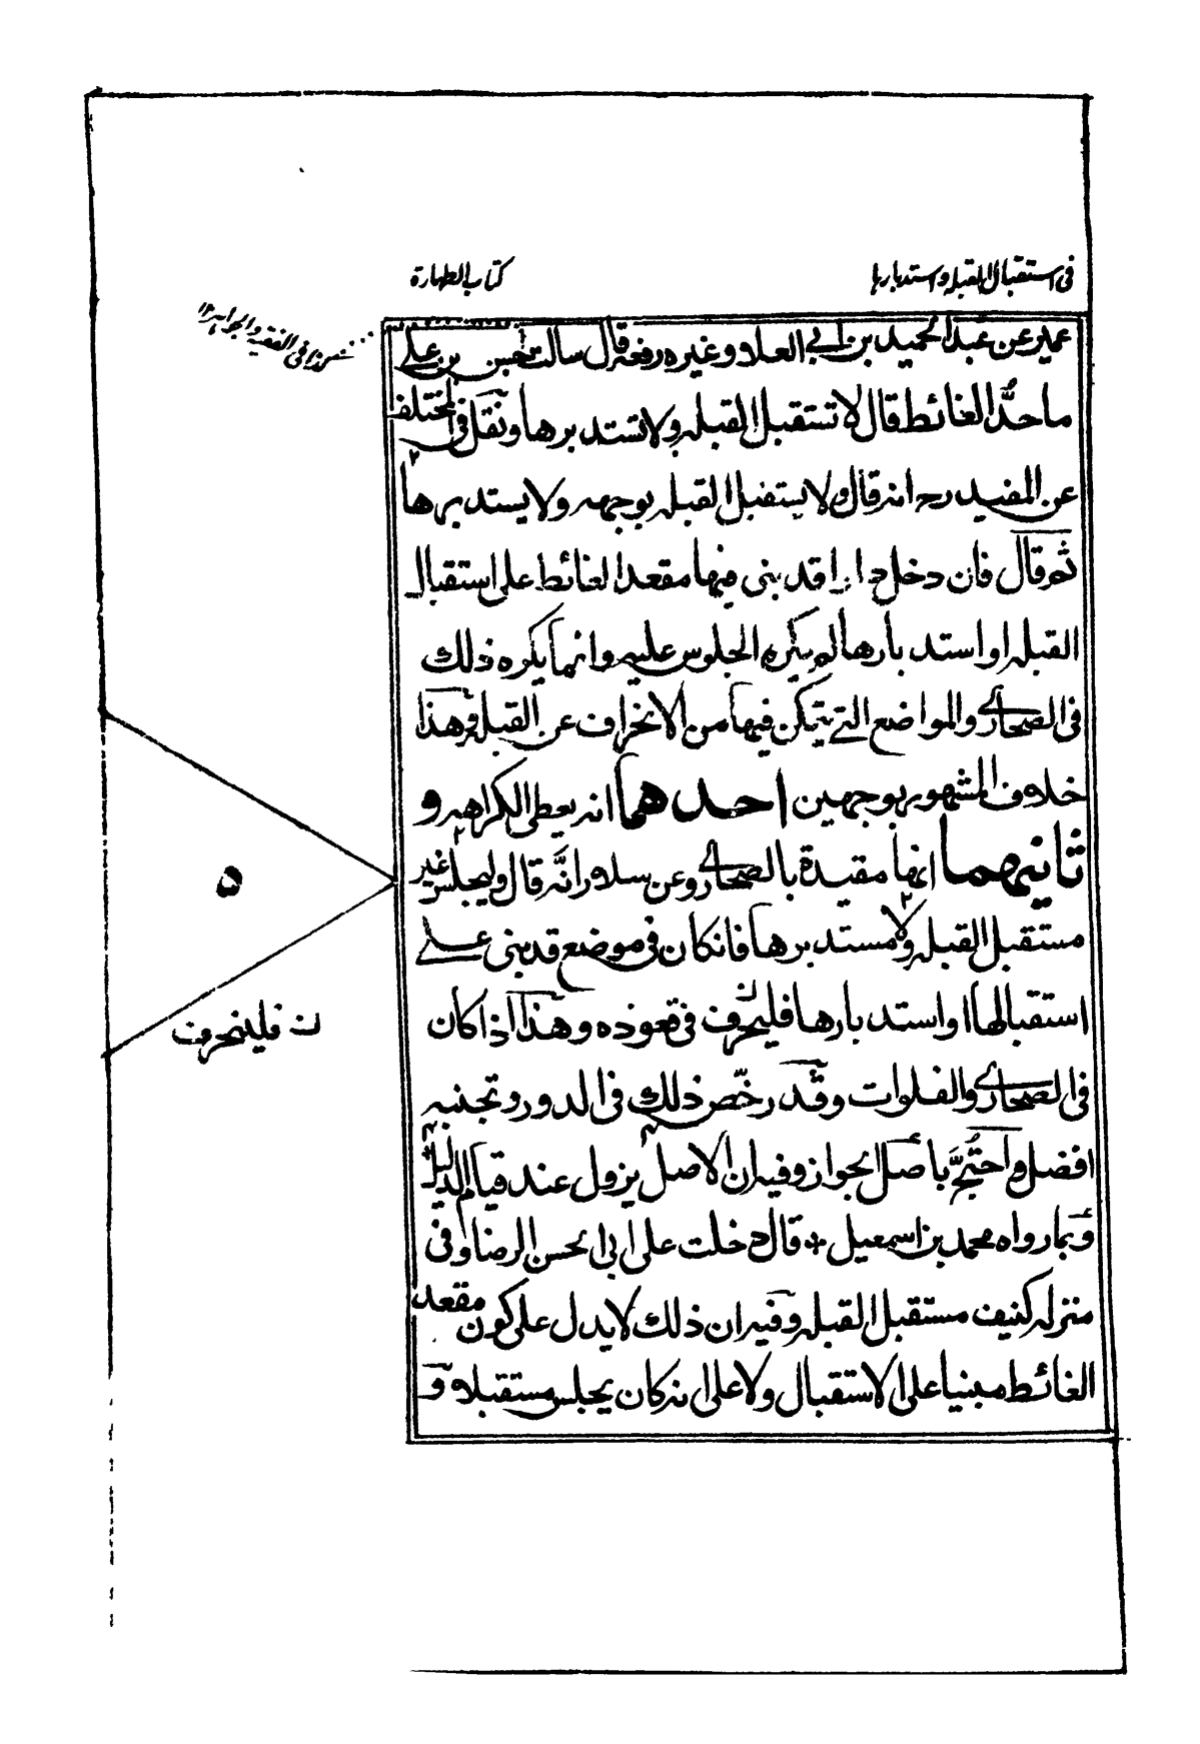 في استقبال القبله و استدبارها
كتاب الطهارة
عمير عن عبد الحميد بن ابي العلا و غيره رفعه قال سالت الحسن بن علي
ما حدّ الغائط قال لا تستقبل القبله و لا تستدبرها و نقل في المختلف
عن المفيد ره انه قال و لا يستقبل القبله بوجهه و لا يستدبرها
ثم قال فان دخل دارا قد بنى فيها مقعد الغائط على استقبال
القبله او استدبارها لم يكره الجلوس عليه و انما يكره ذلك
في الصحاري و المواضع التي يتمكن فيها من الانحراف عن القبله و هذا
خلاف المشهور بوجهين احدهما انه يعطي الكراهيه و
ثانيهما انها مقيدة بالصحاري و عن سلار انّه قال و ليجلس غير
مستقبل القبله و لا مستدبرها فانكان في موضع قد بنى على
استقبالها او استدبارها فلينحرف في قعوده و هذا اذا كان
في الصحاري و الفلوات و قد رخّص ذلك في الدور و تجنبه
افضل و احتجّ باصل الجواز و فيه ان الاصل يزول عند قيام الدليل
و بما رواه محمد بن اسمعيل قال دخلت على ابي الحسن الرضا و في
منزله كنيف مستقبل القبله و فيه ان ذلك لا يدل على كون مقعد
الغائط مبنيا على الاستقبال و لا على انه كان يجلس مستقبلا و
في الفقيه و
۵
ن فلينحرف